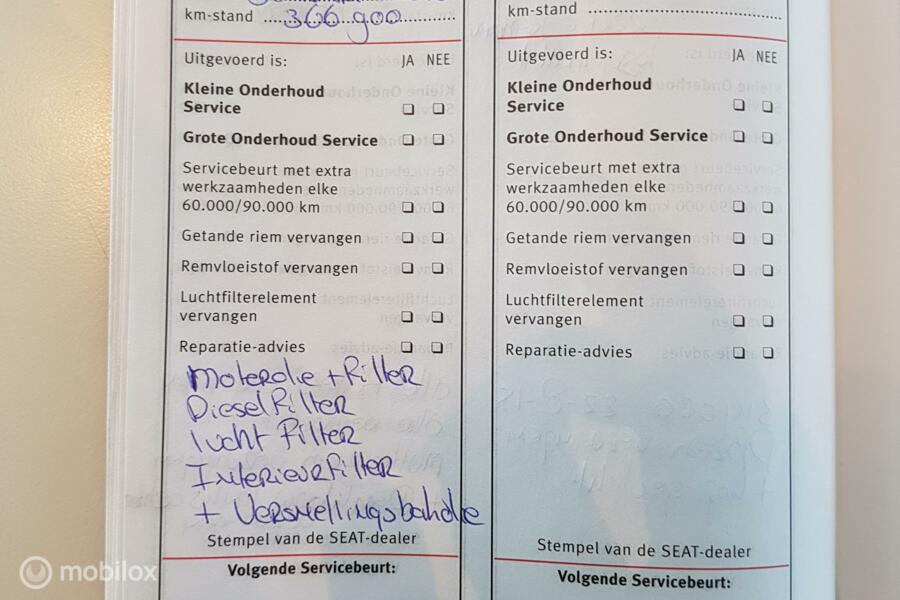 km-stand ....366.900............
Uitgevoerd is: JA NEE
Kleine Onderhoud
Service
Grote Onderhoud Service
Servicebeurt met extra
werkzaamheden elke
60.000/90.000 km
Getande riem vervangen
Remvloeistof vervangen
Luchtfilterelement
vervangen
Reparatie-advies
Moterolie + filter
Diesel filter
lucht filter
Interieurfilter
+ Versnellingsbakolie
Stempel van de SEAT-dealer
Volgende Servicebeurt:
km-stand ....................................
Uitgevoerd is: JA NEE
Kleine Onderhoud
Service
Grote Onderhoud Service
Servicebeurt met extra
werkzaamheden elke
60.000/90.000 km
Getande riem vervangen
Remvloeistof vervangen
Luchtfilterelement
vervangen
Reparatie-advies
Stempel van de SEAT-dealer
Volgende Servicebeurt:
mobilox